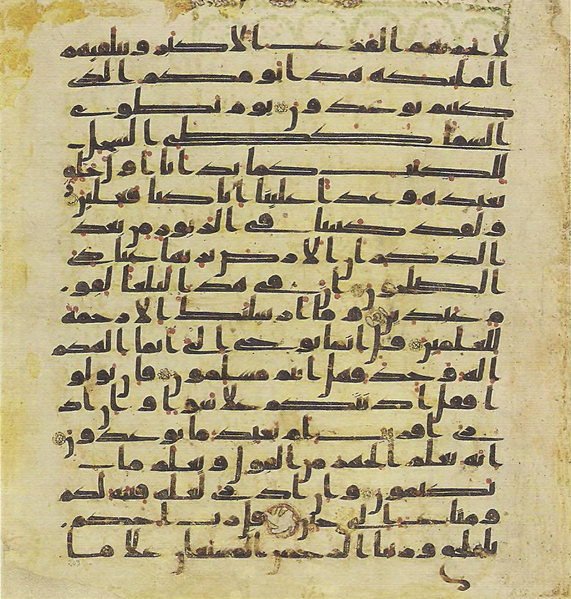 لا يحزنهم الفزع الاكبر وتتلقيهم
الملئكة هذا يومكم الذي
كنتم توعدون يوم نطوي
السما كطي السجل
للكتب كما بدانا اول خلق
نعيده وعدا علينا انا كنا فعلين
ولقد كتبنا في الزبور من بعد
الذكر ان الارض يرثها عبادي
الصلحون ان في هذا لبلغا لقو
م عبدين وما ارسلنك الا رحمة
للعلمين قل انما يوحى الي انما الهكم
اله وحد فهل انتم مسلمون فان تولو
ا فقل اذنتكم على سوا وان اد
ري اقريب ام بعيد ما توعدون
انه يعلم الجهر من القول ويعلم ما
تكتمون وان ادري لعله فتنة لكم
ومتع الى حين قل رب احكم
بالحق وربنا الرحمن المستعان على ما